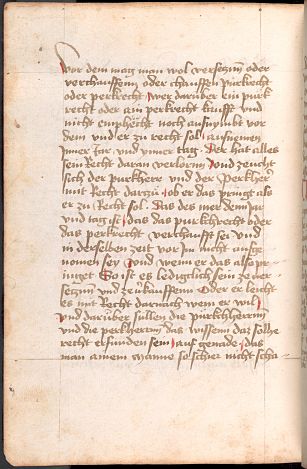 vor dem mag man wol versetzenn oder
verchauffenn oder chauffen purkrecht
oder perkrecht wer darüber ein purk
recht oder ain perkrecht kaufft und
nicht empfecht noch aufnimbt vor
dem und er zu recht sol aufnemen
Inner Jar und Inner tag Der hat alles
sein Recht daran verlorn Und zeucht
sich der purkherr und der perkher
mit Recht darzu ob er das pringt als
er zu Recht sol das des mer denn Jar
und tag ist das das purkchrecht oder
das perkrecht verchaufft sei und
in derselben zeit vor Im nicht aufge
nomen sey Und wenn er das also pr
inget So ist es ledigklich sein ze ver
setzenn und zeverkauffenn Oder er leicht
es mit Recht darnach wem er wil
und darüber sullen die purkchherrnn
und die perkherrnn das wissenn daz solhe
recht erfunden sein auf genade das
man ainem manne so schier nicht scha